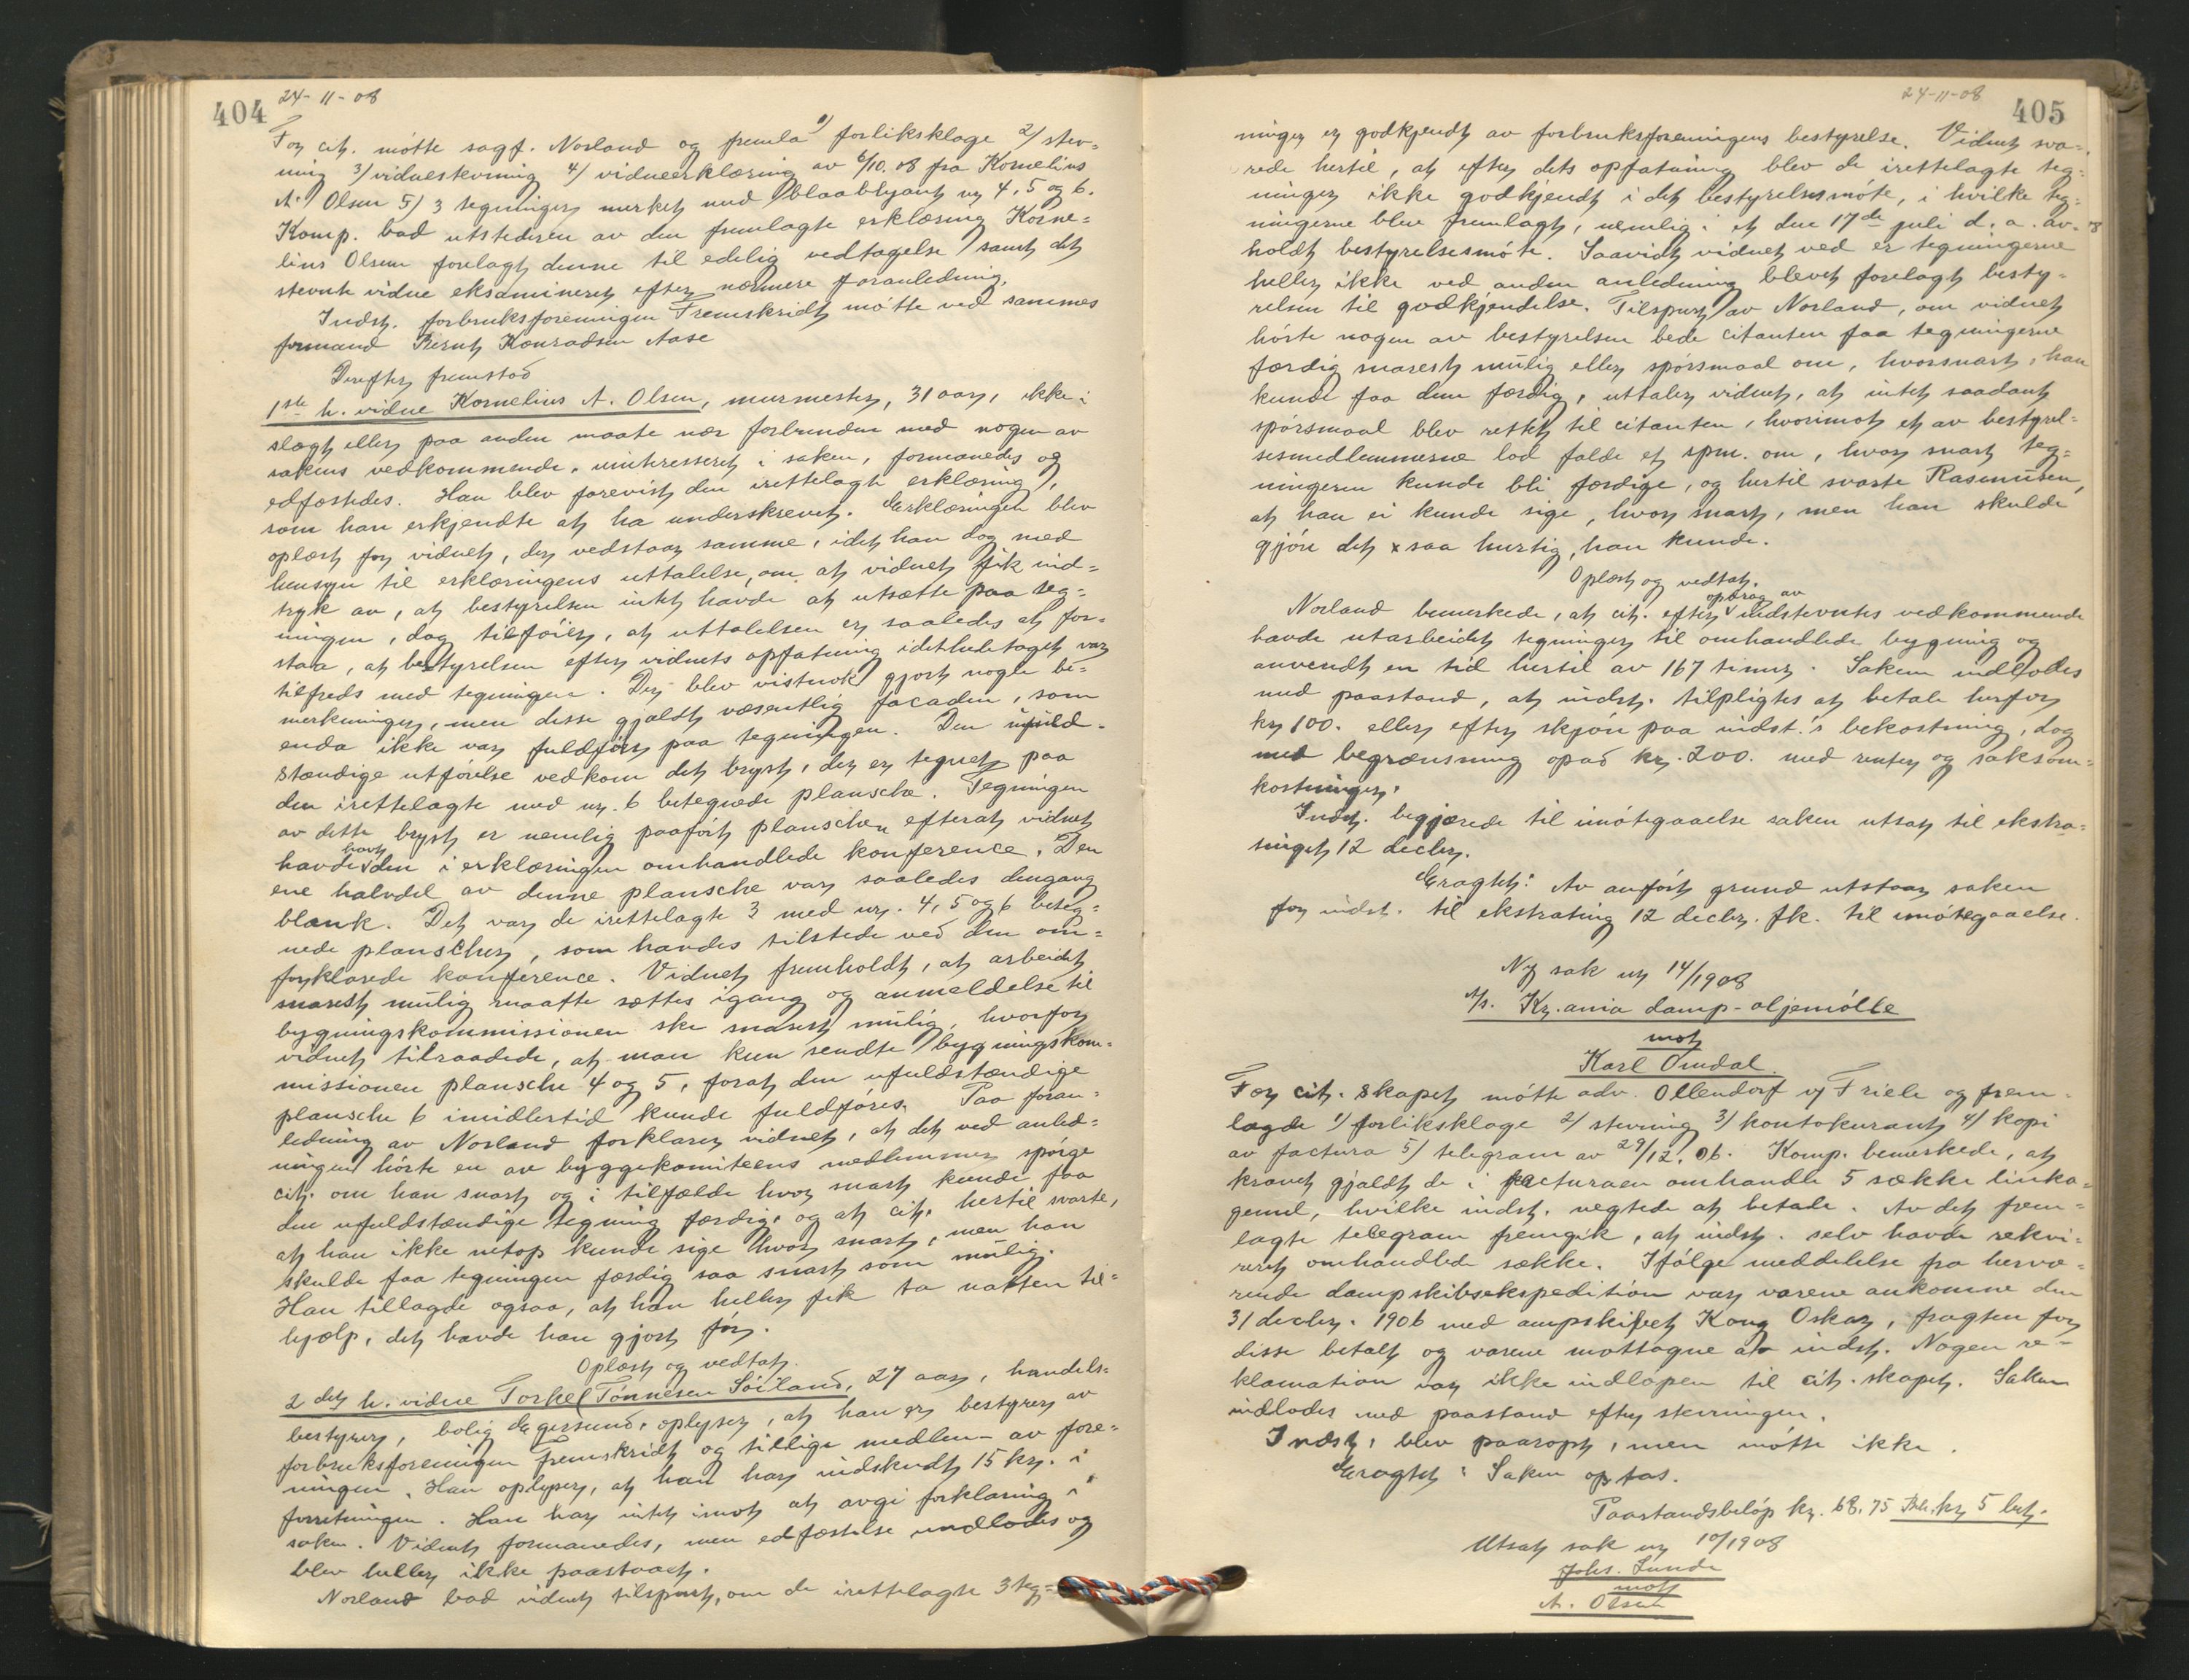 404 24-11-08
For cit. møtte sagf. Norland og fremla 1) forliksklage 2) stev-
ning 3) vidnestevning 4) vidneerklæring av 6/10. 08 fra Kornelius
A. Olsen 5) 3 tegninger merket med blaablyant nr 4, 5 og 6.
Komp. bad utstederen av den fremlagte erklæring Korne-
lius Olsen forelagt denne til edelig vedtagelse samt det
stevnte vidne eksamineret efter nærmere foranledning.
Indst. forbruksforeningen Fremskridt møtte ved sammes
formand Bernt Konradsen Aase
Derefter fremstod
1ste h. vidne Kornelius A. Olsen, murmester, 31 aar, ikke i
slagt eller paa anden maate nær forbunden med nogen av
sakens vedkommende, uinteresseret i saken, formanedes og
edfæstedes. Han blev forevist den irettelagte erklæring,
som han erkjendte at ha underskrevet. Erklæringen blev
oplæst for vidnet, der vedstaar samme, idet han dog med
hensyn til erklæringens uttalelse, om at vidnet fik ind-
tryk av, at bestyrelsen intet havde at utsætte paa teg-
ningen, dog tilføier, at uttalelsen er saaledes at for-
staa, at bestyrelsen efter vidnets opfatning idetheletaget var
tilfreds med tegningen. Der blev vistnok gjort nogle be-
merkninger, men disse gjaldt væsentlig facaden, som
enda ikke var fuldført paa tegningen. Den ufuld-
stændige utførelse vedkom det bryst, der er tegnet paa
den irettelagte med nr. 6 betegnede plansche. Tegningen
av dette bryst er nemlig paaført planschen efterat vidnet
havde havt den i erklæringen omhandlede konference. Den
ene halvdel av denne plansche var saaledes dengang
blank. Det var de irettelagte 3 med nr. 4, 5 og 6 beteg-
nede planscher, som havdes tilstede ved den om-
forklarede konference. Vidnet fremholdt, at arbeidet
snarest mulig maatte sættes igang og anmeldelse til
bygningskommissionen ske snarest mulig, hvorfor
vidnet tilraadede, at man kun sendte bygningskom-
missionen plansche 4 og 5, forat den ufuldstændige
plansche 6 imidlertid kunde fuldføres. Paa foran-
ledning av Norland forklarer vidnet, at det ved anled-
ningen hørte en av byggekomiteens medlemmer spørge
cit. om han snart og i tilfælde hvor snart kunde faa
den ufuldstændige tegning færdig, og at cit. hertil svarte,
at han ikke netop kunde sige hvor snart, men han
skulde faa tegningen færdig saa snart som mulig.
Han tillagde ogsaa, at han heller fik ta natten til-
hjælp, det havde han gjort før.
Oplæst og vedtat.
2det h. vidne Torkel Tønnesen Søiland, 27 aar, handels-
bestyrer, bolig Egersund, oplyser, at han er bestyrer av
forbruksforeningen Fremskridt og tillige medlem av fore-
ningen. Han oplyser, at han har indskudt 15 kr. i
forretningen. Han har intet imot at avgi forklaring i
saken. Vidnet formanedes, men edfæstelse undlodes og
blev heller ikke paastaaet.
Norland bad vidnet tilspurt, om de irettelagte 3 teg-
24-11-08 405
ninger er godkjendt av forbruksforeningens bestyrelse. Vidnet sva-
rede hertil, at efter dets opfatning blev de irettelagte teg-
ninger ikke godkjendt i det bestyrelsesmøte, i hvilke teg-
ningerne blev fremlagt, nemlig i et den 17de juli d. a. av-
holdt bestyrelsesmøte. Saavidt vidnet ved er tegningerne
heller ikke ved anden anledning blevet forelagt besty-
relsen til godkjendelse. Tilspurt av Norland, om vidnet
hørte nogen av bestyrelsen bede citanten faa tegningerne
færdig snarest mulig eller spørsmaal om, hvorsnart, han
kunde faa dem færdig, uttaler vidnet, at intet saadant
spørsmaal blev rettet til citanten, hvorimot et av bestyrel-
sesmedlemmerne lod falde et spm. om, hvor snart teg-
ningerne kunde bli færdige, og hertil svarte Rasmussen,
at han ei kunde sige, hvor snart, men han skulde
gjøre det x saa hurtig, han kunde.
Oplæst og vedtat.
Norland bemerkede, at cit. efter opdrag av indstevntes vedkommende
havde utarbeidet tegninger til omhandlede bygning og
anvendt en tid hertil av 167 timer. Saken indlodes
med paastand, at indst. tilpligtes at betale herfor
kr 100. eller efter skjøn paa indst.'s bekostning, dog
med begrænsning opad kr. 200. med renter og saksom-
kostninger.
Indst. begjærede til imøtegaaelse saken utsat til ekstra-
tinget 12 decbr.
Eragtet: Av anført grund utstaar saken
for indst. til ekstrating 12 decbr. fk. til imøtegaaelse.
Ny sak nr 14/1908
A/s. Kr.ania damp-oljemølle
mot
Karl Omdal.
For cit. skapet møtte adv. Ollendorf v/ Friele og frem-
lagde 1) forliksklage 2) stevning 3) kontokurant 4) kopi
av factura 5) telegram av 29/12. 06. Komp. bemerkede, at
kravet gjaldt de i facturaen omhandle 5 sække linka-
gemel, hvilke indst. vegtede at betale. Av det frem-
lagte telegram fremgik, at indst. selv havde rekvi-
reret omhandlede sække. Ifølge meddelelse fra hervæ-
rende dampskibsekspedition var varene ankomne den
31 decbr. 1906 med ampskibet Kong Oskar, fragten for
disse betalt og varene mottagne av indst. Nogen re-
klamation var ikke indløpen til cit. skapet. Saken
indlodes med paastand efter stevningen.
Indst. blev paaropt, men møtte ikke.
Eragtet: Saken optas.
Paastandsbeløp kr. 68.75 kr 5 bet.
Utsat sak nr 10/1908
Johs. Lunde
mot
A. Olsen